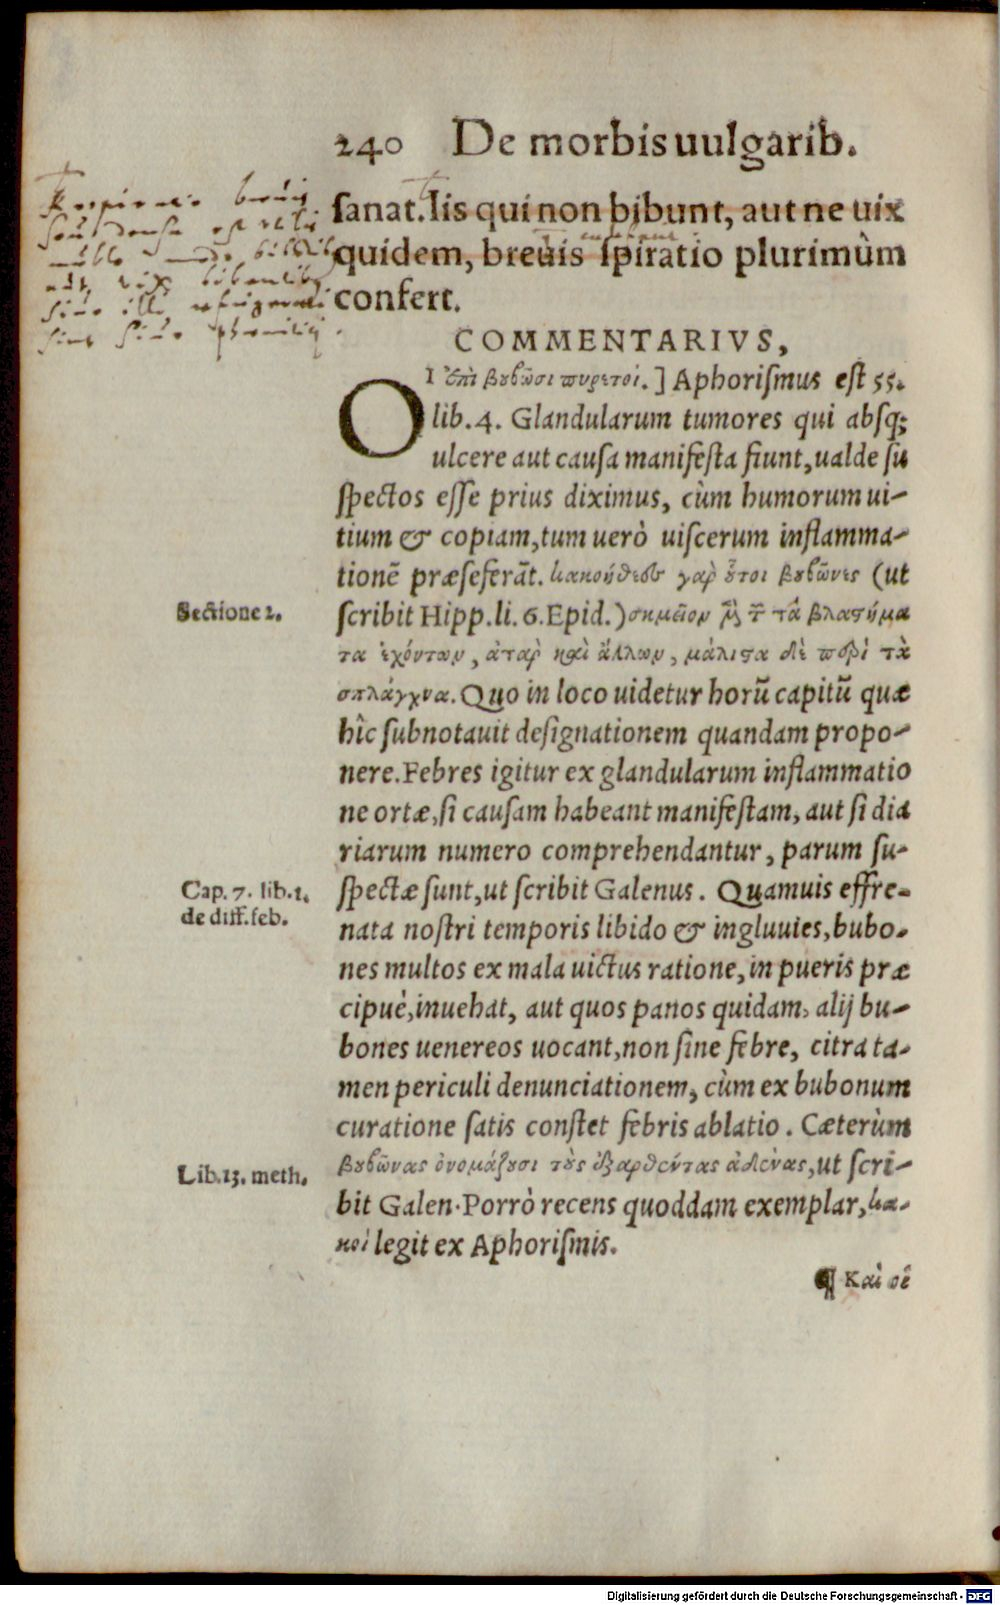 240 De morbis uulgarib.
sanat. Iis qui non bibunt, aut ne uix
quidem, breuis spiratio plurimùm
confert.
COMMENTARIVS,
OI ἐπὶ βουβῶσι πυρετοί.] Aphorismus est 55.
lib. 4. Glandularum tumores qui absq;
ulcere aut causa manifesta fiunt, ualde su
spectos esse prius diximus, cùm humorum ui-
tium & copiam, tum uerò uiscerum inflamma-
tionē præseferāt. κακοήθεες γαρ οὗτοι βουβῶνες (ut
Sectione 2.
scribit Hipp. li. 6. Epid.) σημεῖον τὰ βλαστήμα
τα ἐχόντων, ἀταρ καὶ ἄλλων, μάλιστα δὲ περὶ τὰ
σπλάγχνα. Quo in loco uidetur horū capitū quæ
hîc subnotauit designationem quandam propo-
nere. Febres igitur ex glandularum inflammatio
ne ortæ, si causam habeant manifestam, aut si dia
riarum numero comprehendantur, parum su-
Cap. 7. lib. 1.
de diff. feb.
spectæ sunt, ut scribit Galenus. Quamuis effre-
nata nostri temporis libido & ingluuies, bubo-
nes multos ex mala uictus ratione, in pueris præ
cipuè, inuehat, aut quos panos quidam, alij bu-
bones uenereos uocant, non sine febre, citra ta-
men periculi denunciationem, cùm ex bubonum
curatione satis constet febris ablatio. Cæterùm
Lib. 13. meth.
βουβῶνας ὀνομάζουσι τοὺς ἐξαρθέντας ἀδένας, ut scri-
bit Galen. Porrò recens quoddam exemplar, κα-
κοὶ legit ex Aphorismis.
¶ Καὶ οἱ
Digitalisierung gefördert durch die Deutsche Forschungsgemeinschaft - DFG